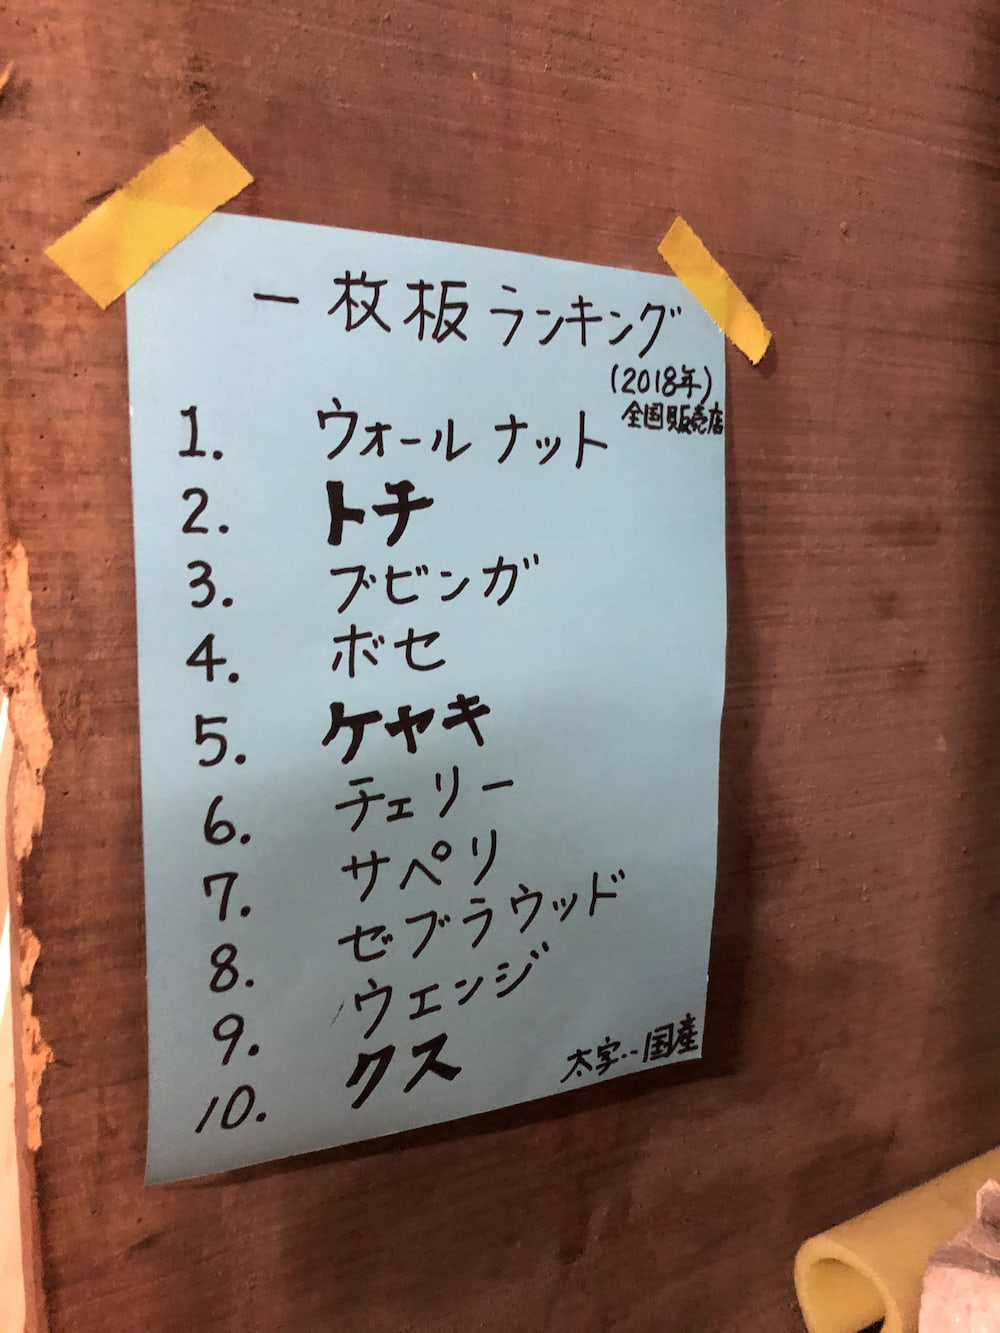 一枚板ランキング
(2018年)
全国販売店
1. ウォールナット
2. トチ
3. ブビンガ
4. ボセ
5. ケヤキ
6. チェリー
7. サペリ
8. ゼブラウッド
9. ウエンジ
10. クス
太字‥国産